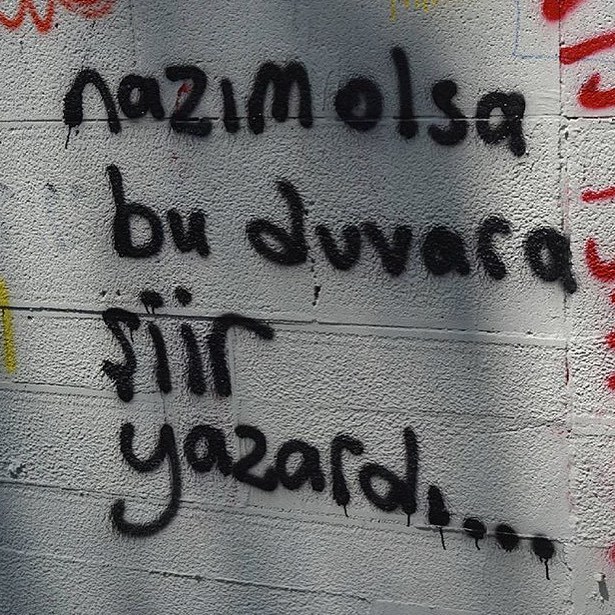 nazım olsa
bu duvara
şiir
yazardı....